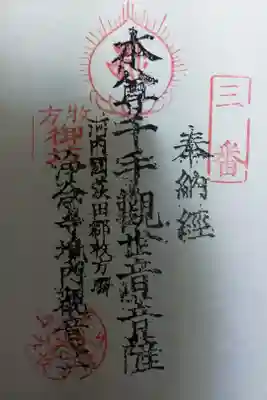 三番
奉納經
本尊千手觀世音菩薩
河内國茨田郡枚方驛
淨念寺境内觀音
枚方